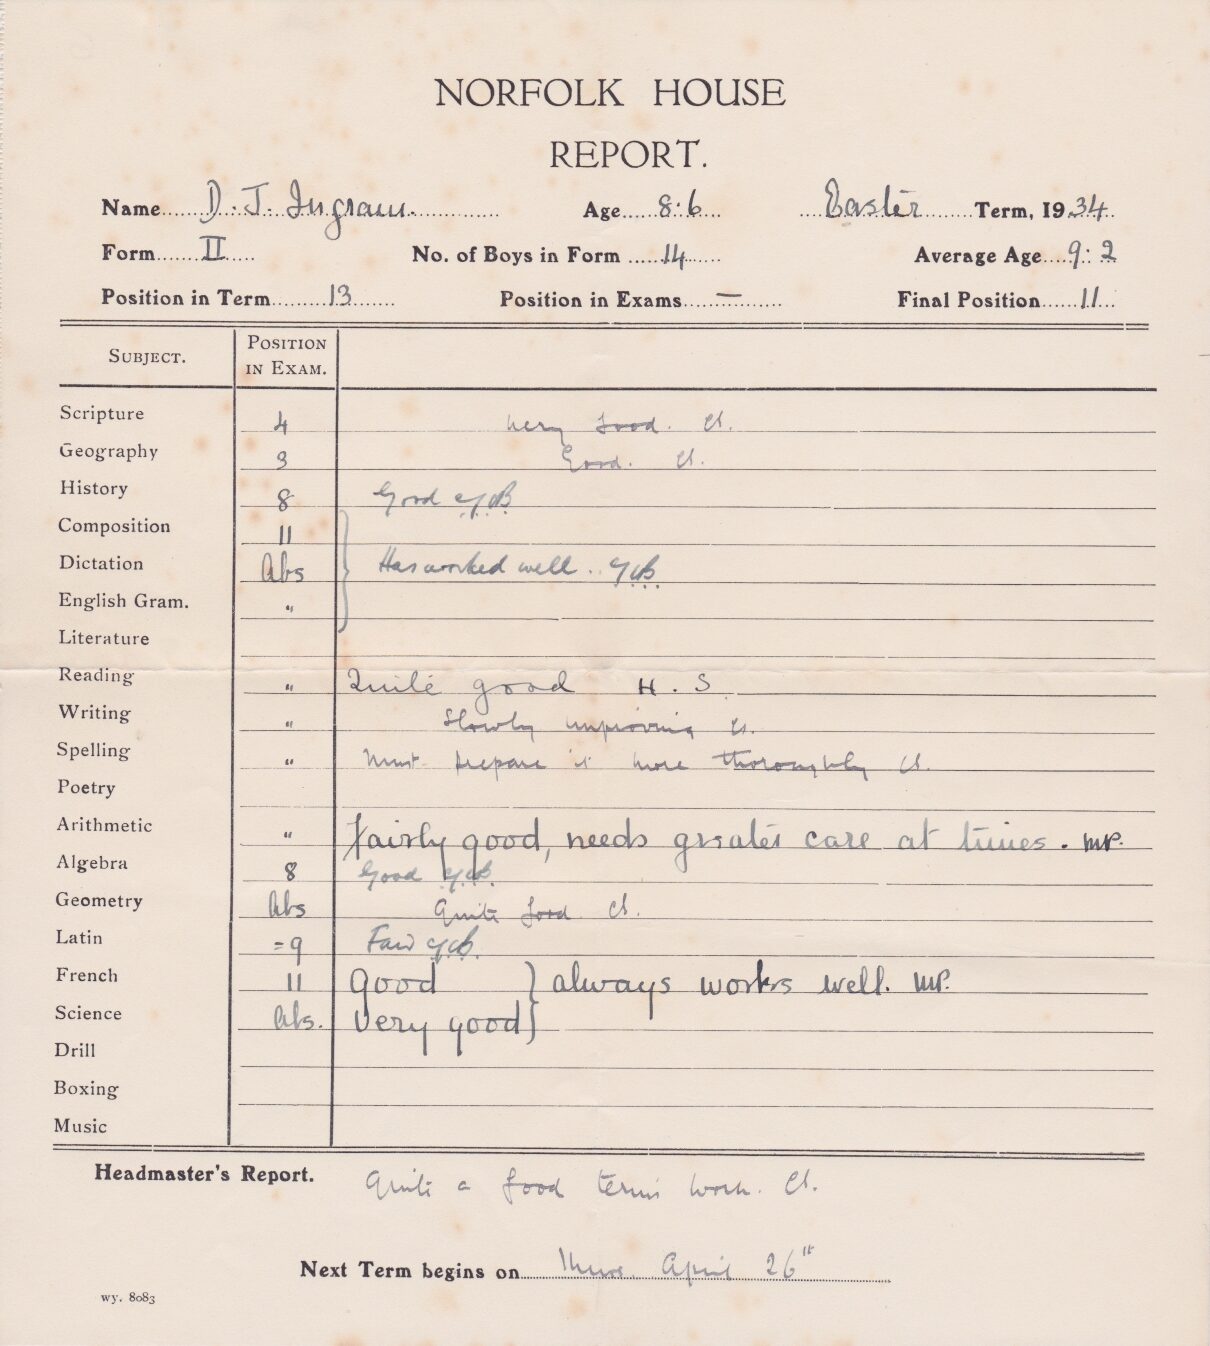 NORFOLK HOUSE
REPORT.
Name D. J. Ingram. Age 8.6 Easter Term, 1934
Form II No. of Boys in Form 14 Average Age 9.2
Position in Term 13 Position in Exams — Final Position 11
SUBJECT. POSITION IN EXAM.
Scripture 4 Very Good.
Geography 3 Good.
History 8 Good
Composition 11
Dictation Abs Has worked well.
English Gram. "
Literature
Reading " Quite good H. S.
Writing " Slowly improving
Spelling " Must prepare it more thoroughly
Poetry
Arithmetic " Fairly good, needs greater care at times. MP.
Algebra 8 Good
Geometry Abs Quite Good
Latin =9 Fair
French 11 Good } always works well. MP.
Science Abs. Very good }
Drill
Boxing
Music
Headmaster's Report. Quite a good terms work.
Next Term begins on Thurs. April 26th
wy. 8083